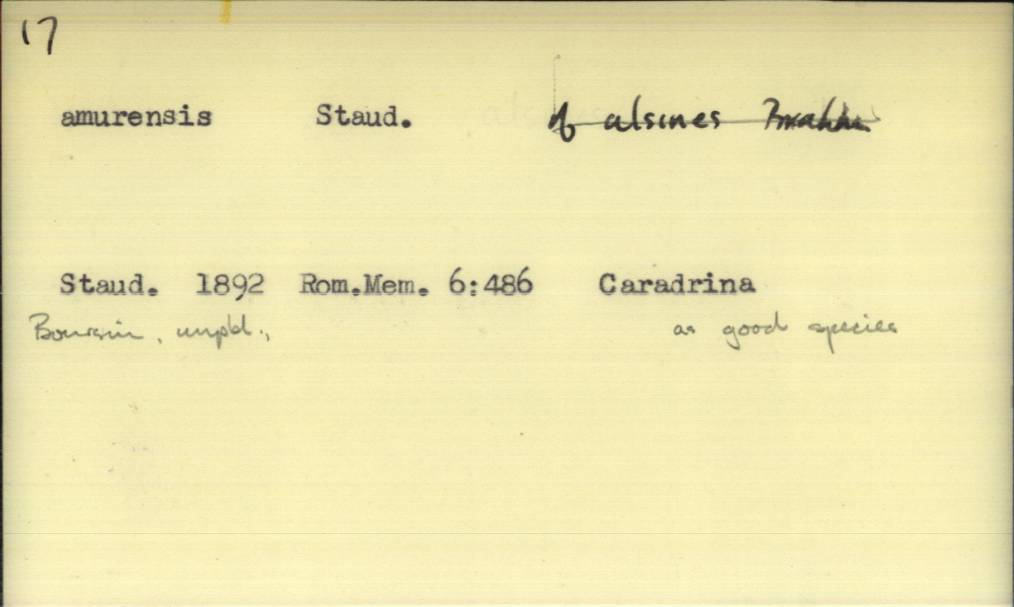 17
amurensis Staud. alsines Brahm
Staud. 1892 Rom.Mem. 6:486 Caradrina
Boursin, unpbl., as good species